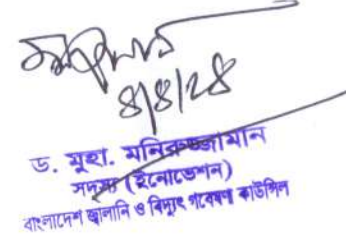 ৪/৪/২৪
ড. মুহা. মনিরুজ্জামান
সদস্য (ইনোভেশন)
বাংলাদেশ জ্বালানি ও বিদ্যুৎ গবেষণা কাউন্সিল